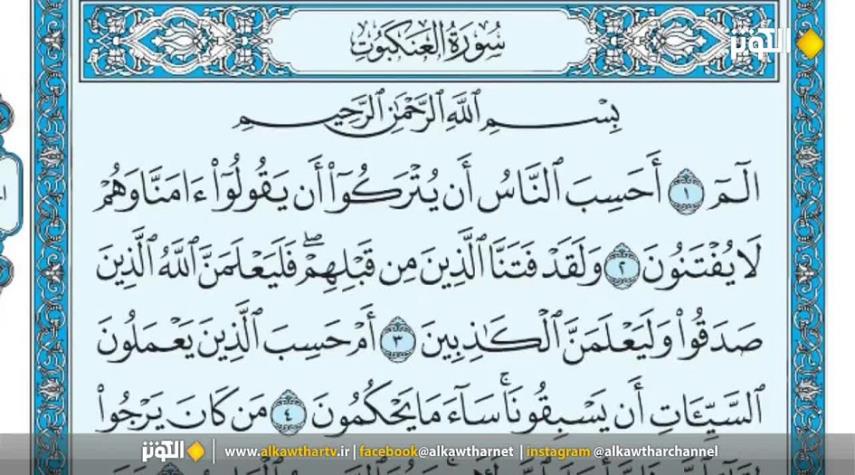 الكوثر
سُورَةُ العَنكَبُوتِ
بِسْمِ ٱللَّهِ ٱلرَّحْمَٰنِ ٱلرَّحِيمِ
الٓمٓ ١ أَحَسِبَ ٱلنَّاسُ أَن يُتْرَكُوٓا۟ أَن يَقُولُوٓا۟ ءَامَنَّا وَهُمْ
لَا يُفْتَنُونَ ٢ وَلَقَدْ فَتَنَّا ٱلَّذِينَ مِن قَبْلِهِمْ ۖ فَلَيَعْلَمَنَّ ٱللَّهُ ٱلَّذِينَ
صَدَقُوا۟ وَلَيَعْلَمَنَّ ٱلْكَٰذِبِينَ ٣ أَمْ حَسِبَ ٱلَّذِينَ يَعْمَلُونَ
ٱلسَّيِّـَٔاتِ أَن يَسْبِقُونَا ۚ سَآءَ مَا يَحْكُمُونَ ٤ مَن كَانَ يَرْجُوا۟
الكوثر www.alkawthartv.ir | facebook@alkawtharnet | instagram @alkawtharchannel